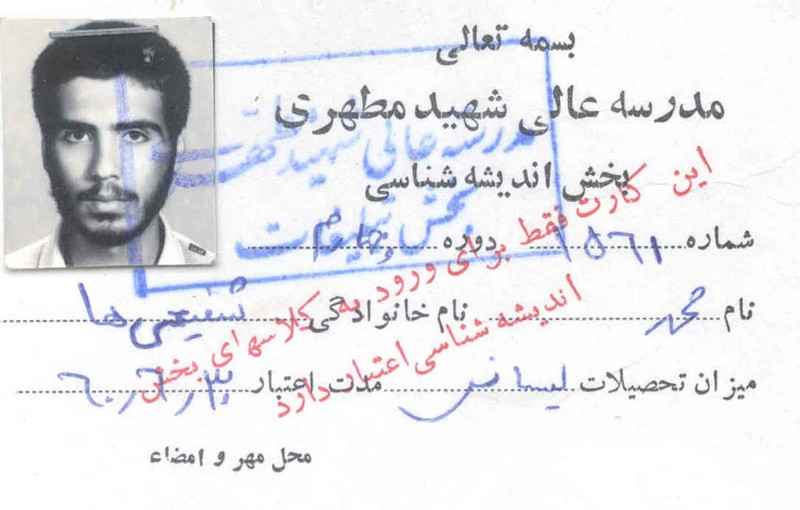 بسمه تعالی
مدرسه عالی شهید مطهری
بخش اندیشه شناسی
شماره ۱۵۶۱ دوره چهارم
نام محمد نام خانوادگی شفیعی ها
میزان تحصیلات لیسانس مدت اعتبار ۶۰/۶/۳۰
محل مهر و امضاء
این کارت فقط برای ورود به کلاسهای بخش
اندیشه شناسی اعتبار دارد
مدرسه عالی شهید مطهری
بخش تبلیغات